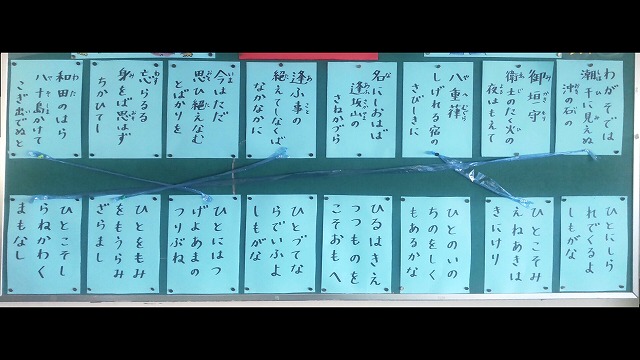 わがそでは
潮干に見えぬ
沖の石の
御垣守
衛士のたく火の
夜はもえて
八重葎
しげれる宿の
さびしきに
名にしおはば
逢坂山の
さねかづら
逢ふ事の
絶えてしなくば
なかなかに
今はただ
思ひ絶えなむ
とばかりを
忘らるる
身をば思はず
ちかひてし
和田のはら
八十島かけて
こぎ出でぬと
ひとにしら
れでくるよ
しもがな
ひとこそみ
えねあきは
きにけり
ひとのいの
ちのをしく
もあるかな
ひるはきえ
つつものを
こそおもへ
ひとづてな
らでいふよ
しもがな
ひとにはつ
げよあまの
つりぶね
ひとをもみ
をもうらみ
ざらまし
ひとこそし
らねかわく
まもなし